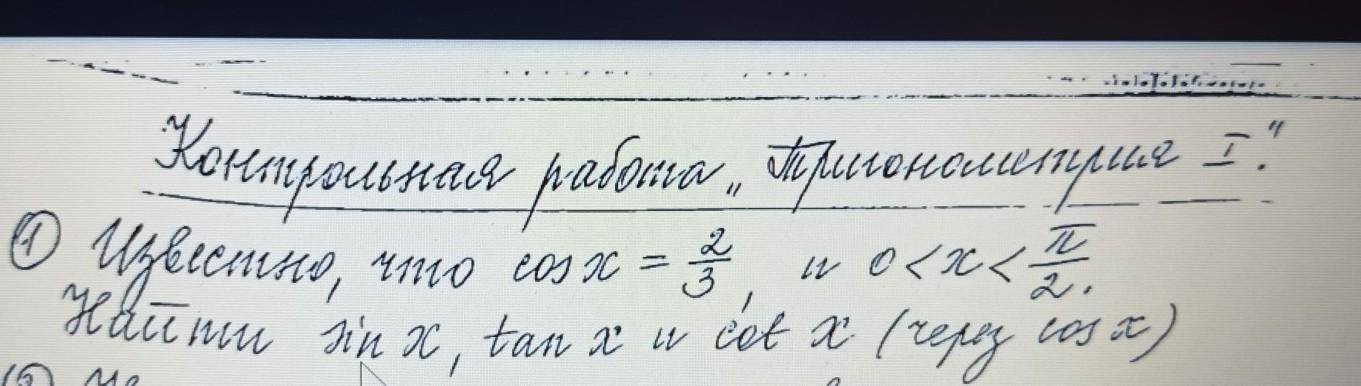 Контрольная работа „Тригонометрия I."
① Известно, что cos x = 2/3, и 0 < x < π/2.
Найти sin x, tan x и cot x (через cos x)